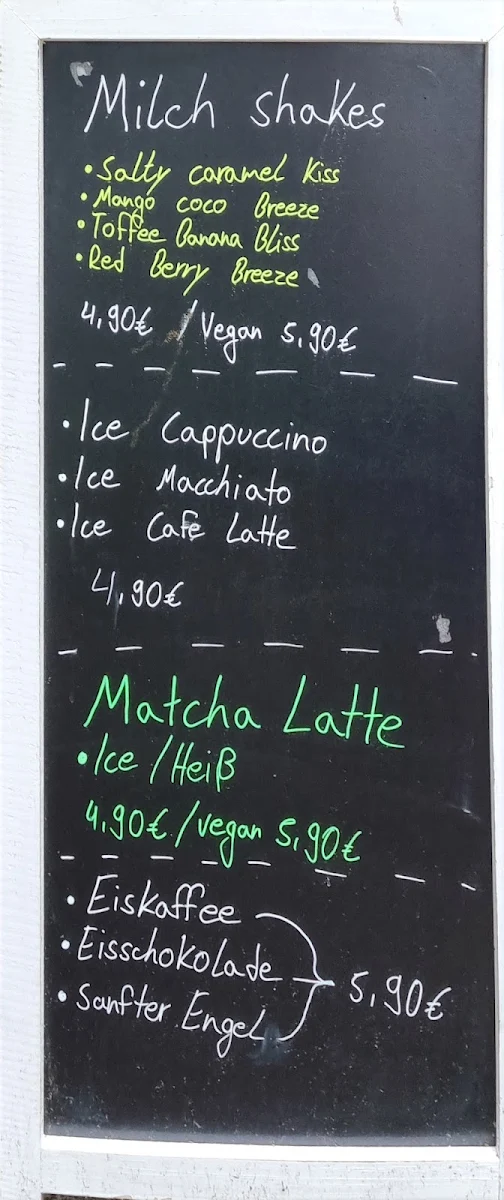 Milch shakes
• Salty caramel Kiss
• Mango coco Breeze
• Toffee Banana Bliss
• Red Berry Breeze
4,90€ / Vegan 5,90€
• Ice Cappuccino
• Ice Macchiato
• Ice Cafe Latte
4,90€
Matcha Latte
• Ice / Heiß
4,90€ / vegan 5,90€
• Eiskaffee
• Eisschokolade 5,90€
• Sanfter Engel